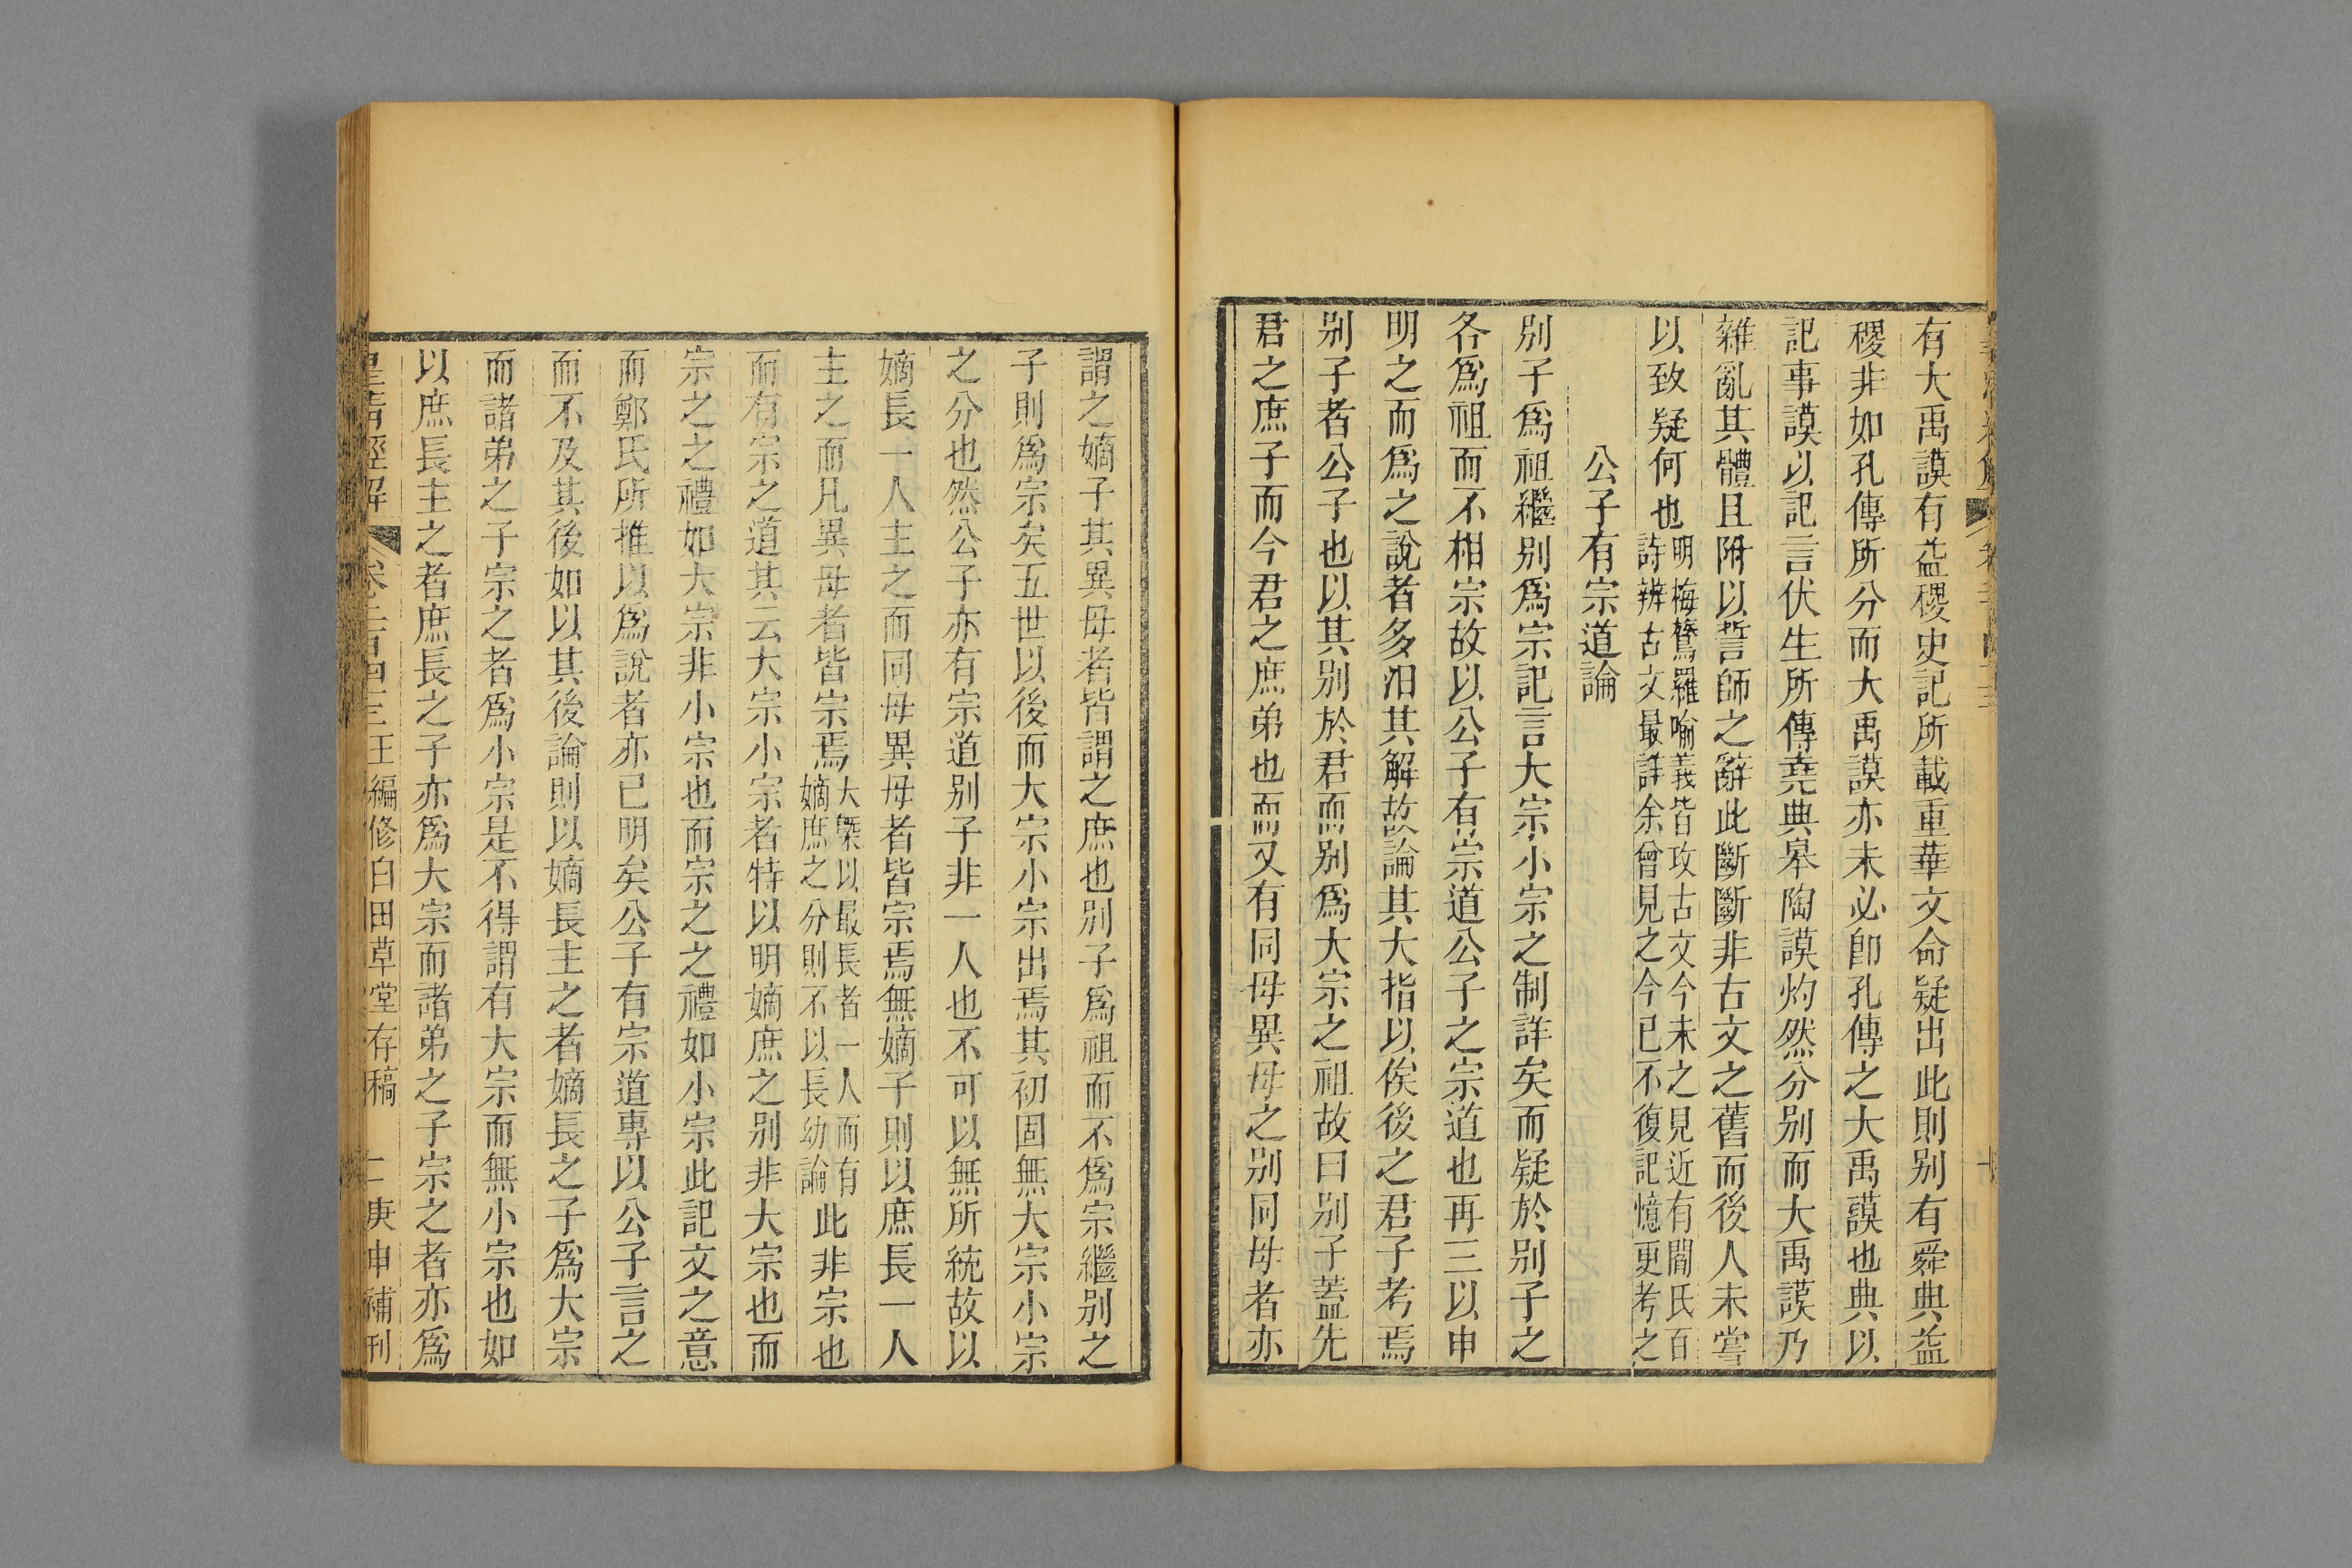 有大禹謨有益稷史記所載重華文命疑出此則别有舜典益
稷非如孔傳所分而大禹謨亦未必卽孔傳之大禹謨也典以
記事謨以記言伏生所傳堯典皋陶謨灼然分别而大禹謨乃
雜亂其體且附以誓師之辭此斷斷非古文之舊而後人未嘗
以致疑何也明梅鷟羅喻義皆攻古文今未之見近有閻氏百
詩辨古文最詳余曾見之今已不復記憶更考之
公子有宗道論
别子爲祖繼别爲宗記言大宗小宗之制詳矣而疑於别子之
各爲祖而不相宗故以公子有宗道公子之宗道也再三以申
明之而爲之說者多汨其解故論其大指以俟後之君子考焉
别子者公子也以其别於君而别爲大宗之祖故曰别子蓋先
君之庶子而今君之庶弟也而又有同母異母之别同母者亦
謂之嫡子其異母者皆謂之庶也别子爲祖而不爲宗繼别之
子則爲宗矣五世以後而大宗小宗出焉其初固無大宗小宗
之分也然公子亦有宗道别子非一人也不可以無所統故以
嫡長一人主之而同母異母者皆宗焉無嫡子則以庶長一人
主之而凡異母者皆宗焉大槩以最長者一人而有
嫡庶之分則不以長幼論此非宗也
而有宗之道其云大宗小宗者特以明嫡庶之别非大宗也而
宗之之禮如大宗非小宗也而宗之之禮如小宗此記文之意
而鄭氏所推以爲說者亦已明矣公子有宗道專以公子言之
而不及其後如以其後論則以嫡長主之者嫡長之子爲大宗
而諸弟之子宗之者爲小宗是不得謂有大宗而無小宗也如
以庶長主之者庶長之子亦爲大宗而諸弟之子宗之者亦爲
皇清經解 卷二百四三 王編修白田草堂存稿 二 庚申補刊